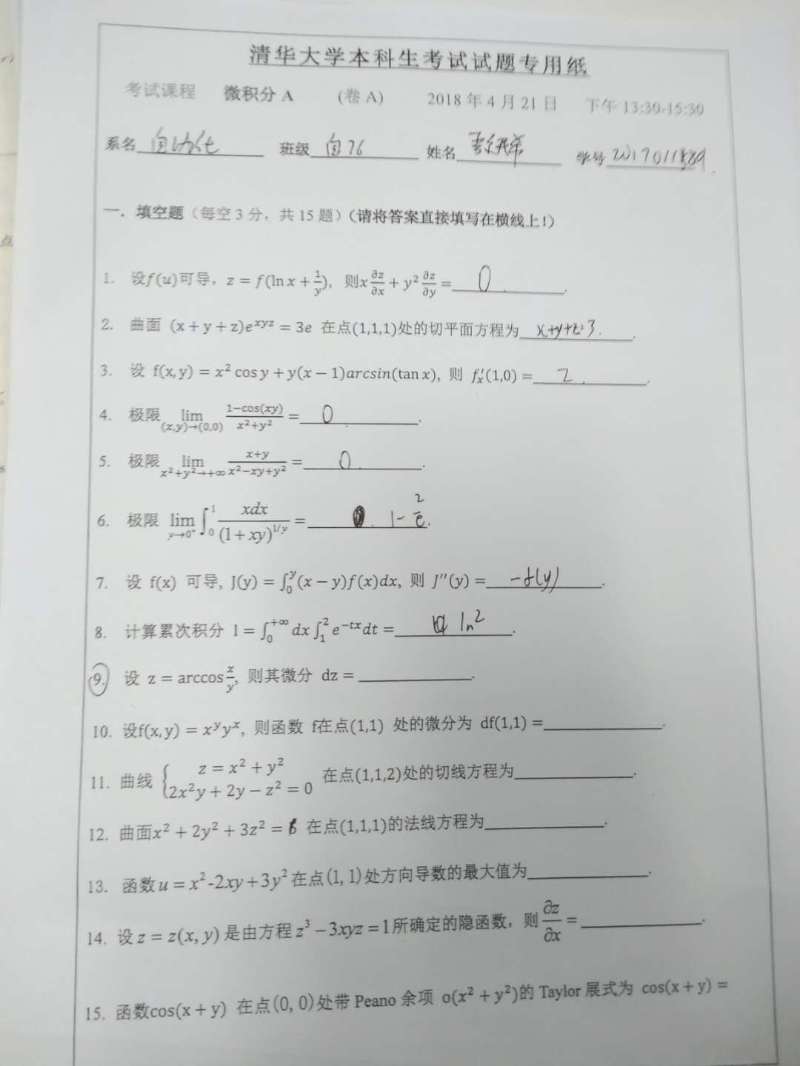 清华大学本科生考试试题专用纸
考试课程 微积分 A (卷 A) 2018 年 4 月 21 日 下午 13:30-15:30
系名 自动化 班级 自76 姓名 学号
一. 填空题（每空 3 分，共 15 题）（请将答案直接填写在横线上！）
1. 设f(u)可导，z = f(ln x + 1/y)，则x ∂z/∂x + y² ∂z/∂y = 0 .
2. 曲面 (x + y + z)e^{xyz} = 3e 在点(1,1,1)处的切平面方程为 x+y+z=3 .
3. 设 f(x,y) = x² cos y + y(x − 1)arcsin(tan x), 则 f'ₓ(1,0) = 2 .
4. 极限 lim_{(x,y)→(0,0)} (1−cos(xy))/(x²+y²) = 0 .
5. 极限 lim_{x²+y²→+∞} (x+y)/(x²−xy+y²) = 0 .
6. 极限 lim_{y→0⁺} ∫₀¹ xdx/(1 + xy)^{1/y} = 1 − 2/e .
7. 设 f(x) 可导, J(y) = ∫₀^y (x − y)f(x)dx, 则 J''(y) = −f(y) .
8. 计算累次积分 I = ∫₀^{+∞} dx ∫₁² e^{−tx}dt = ln2 .
9. 设 z = arccos x/y, 则其微分 dz = .
10. 设f(x,y) = x^y y^x, 则函数 f在点(1,1) 处的微分为 df(1,1) = .
11. 曲线 { z = x² + y² 2x²y + 2y − z² = 0 在点(1,1,2)处的切线方程为 .
12. 曲面x² + 2y² + 3z² = 6 在点(1,1,1)的法线方程为 .
13. 函数 u = x²-2xy+3y² 在点(1, 1)处方向导数的最大值为 .
14. 设 z = z(x, y) 是由方程 z³ − 3xyz = 1 所确定的隐函数，则 ∂z/∂x = .
15. 函数cos(x + y) 在点(0, 0)处带 Peano 余项 o(x² + y²)的 Taylor 展式为 cos(x + y) =